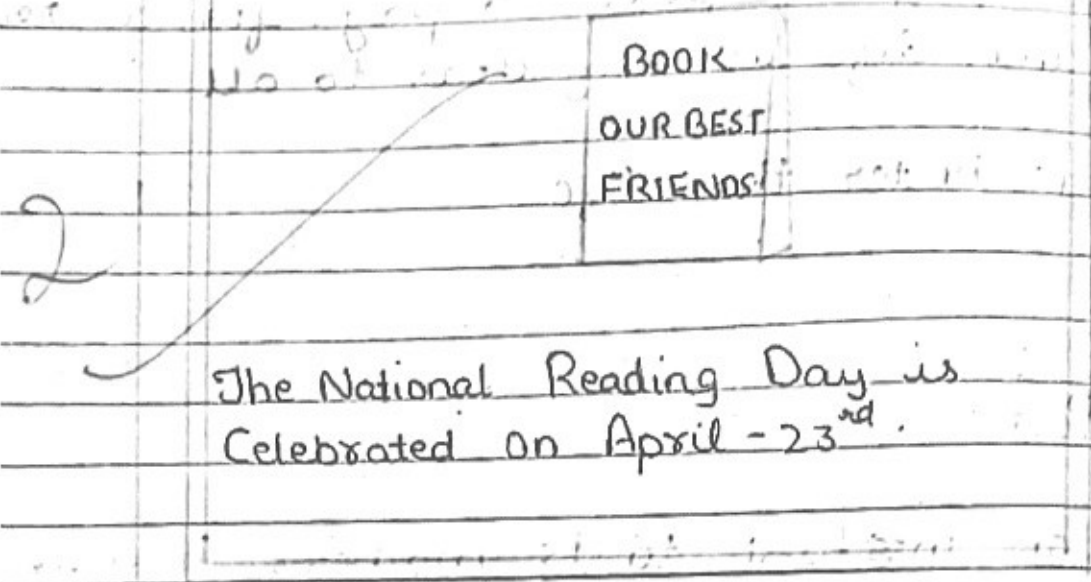 BOOK
OUR BEST
FRIENDS
2
The National Reading Day is
Celebrated on April - 23rd.